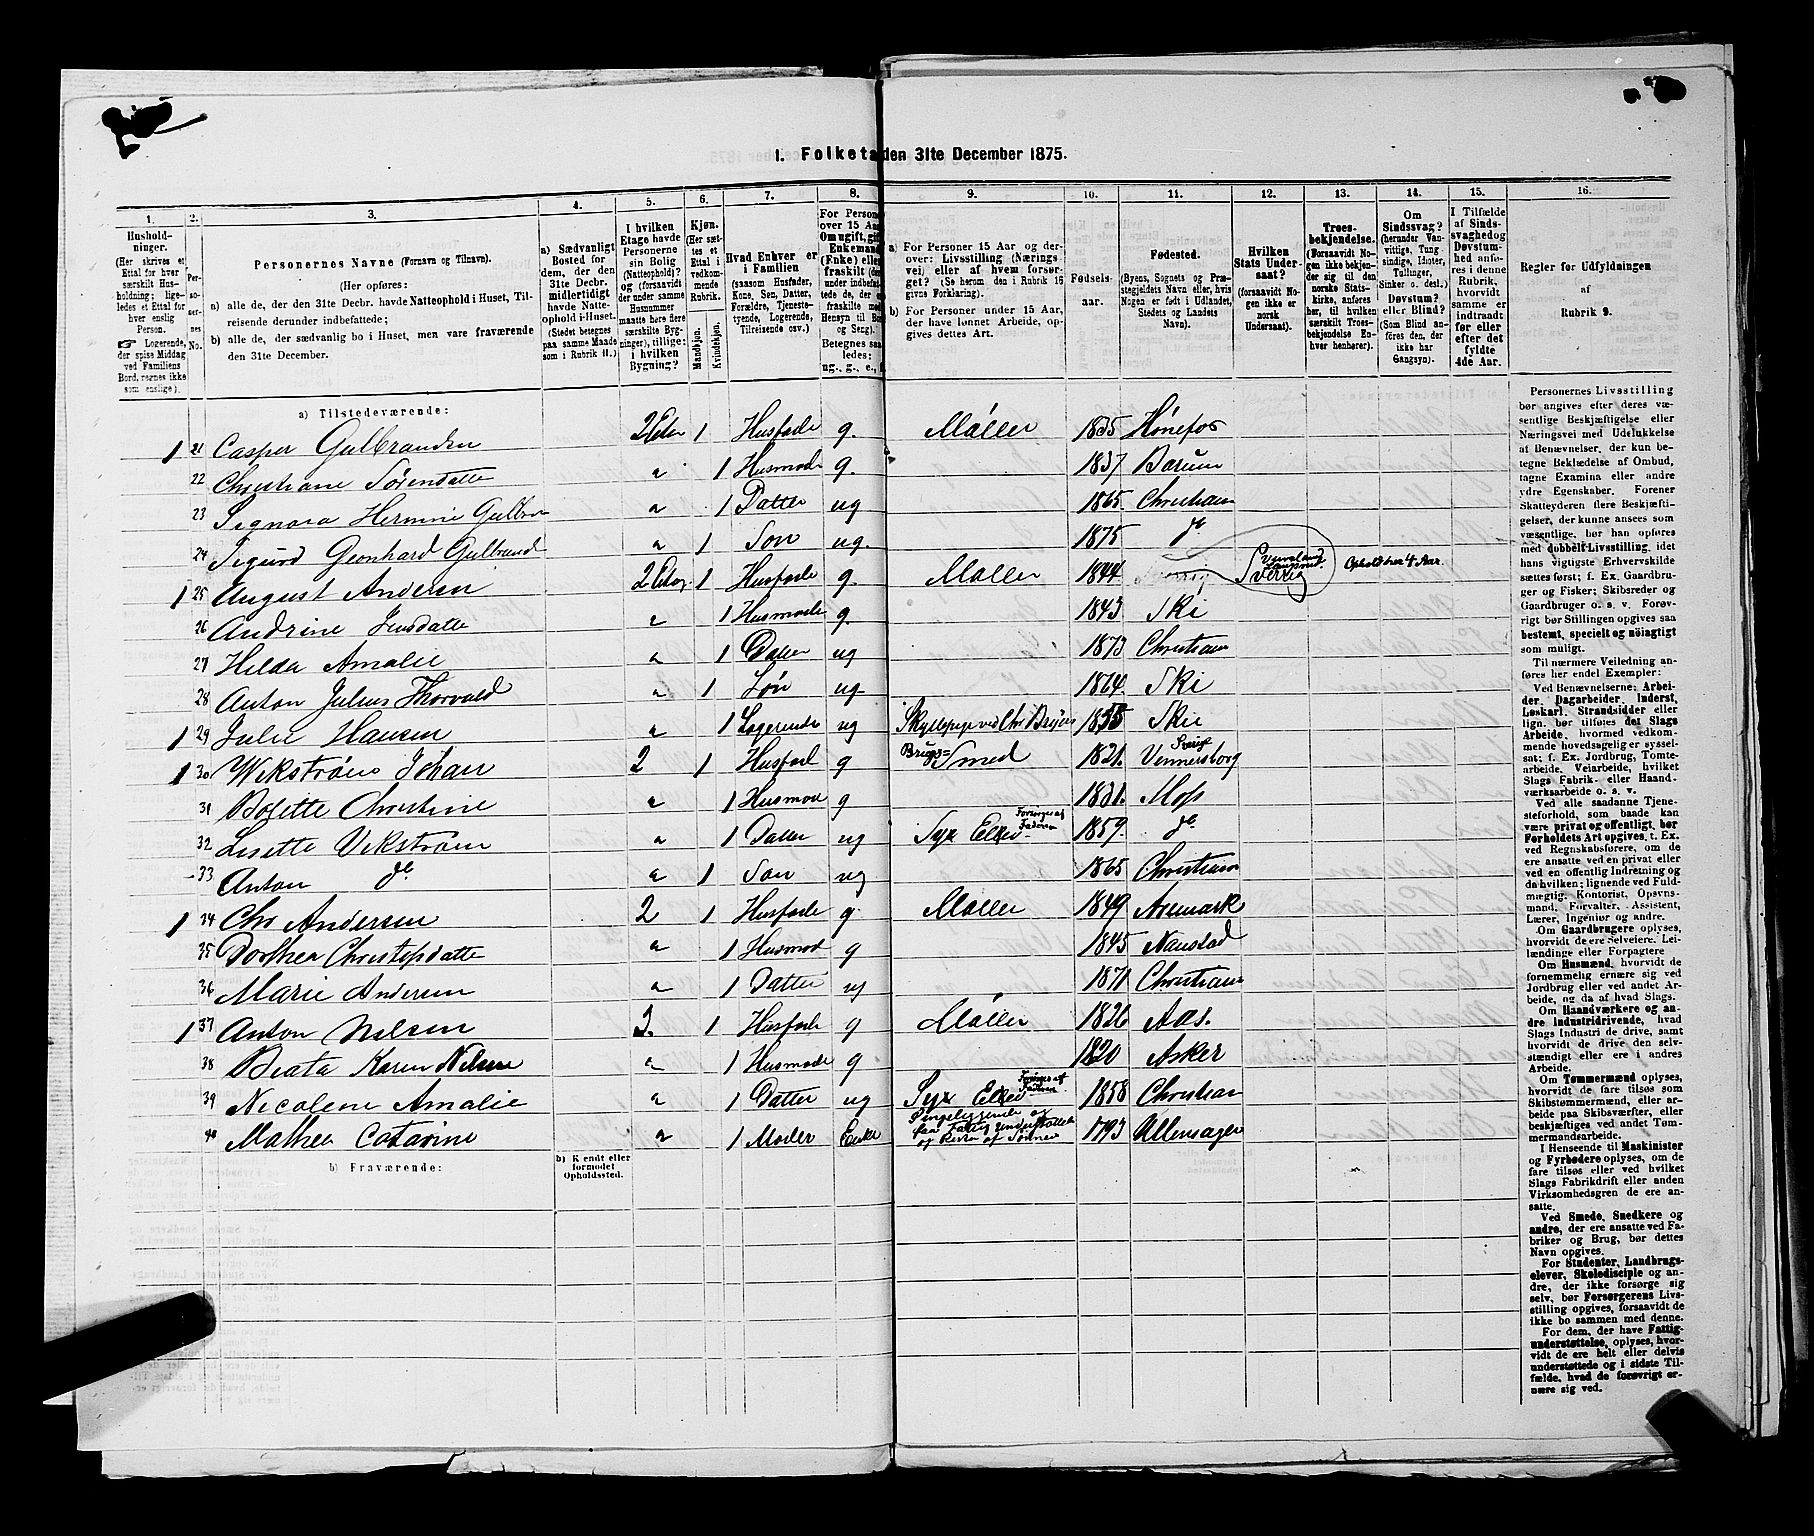 1. Folketæ den 31te December 1875.
1. 2. 3. 4. 5. 6. 7. 8. 9. 10. 11. 12. 13. 14. 15. 16.
Hushold-
ninger.
(Her skrives et
Ettal for hver
særskilt Hus-
holdning; lige-
ledes et Ettal for
hver enslig
Person.
☞ Logerende,
der spise Middag
ved Familiens
Bord, regnes ikke
som enslige).
Per-
so-
ner-
nes
No.
Personernes Navne (Fornavn og Tilnavn).
(Her opføres:
a) alle de, der den 31te Decbr. havde Natteophold i Huset, Til-
reisende derunder indbefattede;
b) alle de, der sædvanlig bo i Huset, men vare fraværende
den 31te December.
a) Sædvanligt
Bosted for
dem, der den
31te Decbr.
midlertidigt
havde Natte-
ophold i Huset.
(Stedet betegnes
paa samme Maade
som i Rubrik 11.).
I hvilken
Etage havde
Personerne
sin Bolig
(Natteophold)?
og (forsaavidt
der under samme
Husnummer
maatte høre flere
særskilte Byg-
ninger), tillige:
i hvilken
Bygning?
Kjøn.
(Her sæt-
tes et
Ettal i
vedkom-
mende
Rubrik.
Mandkjøn.
Kvindekjøn.
Hvad Enhver er
i Familien
(saasom Husfader,
Kone, Søn, Datter,
Forældre, Tjeneste-
tyende, Logerende,
Tilreisende osv.).
For Persone
over 15 Aar
Om ugift, gift
Enkemand
(Enke) eller
fraskilt (der-
under indbefat-
tede de, der ere
fraskilte med
Hensyn til Bord
og Seng).
Betegnes saa-
ledes:
ug., g., e., f.
a) For Personer 15 Aar og der-
over: Livsstilling (Nærings-
vei) eller af hvem forsør-
get? (Se herom den i Rubrik 16
givne Forklaring).
b) For Personer under 15 Aar,
der have lønnet Arbeide, op-
gives dettes Art.
Fødsels-
aar.
Fødested.
(Byens, Sognets og Præ-
stegjeldets Navn eller, hvis
Nogen er født i Udlandet,
Stedets og Landets
Navn).
Hvilken
Stats Under-
saat?
(forsaavidt No-
gen ikke er
norsk
Undersaat).
Troes-
bekjendelse.
(Forsaavidt No-
gen ikke bekjen-
der sig til den
norske Stats-
kirke, anføres
her, til hvilken
særskilt Troes-
bekjendelse En-
hver henhører).
Om
Sindssvag?
(herunder Van-
vittige, Tung-
sindige, Idioter,
Tullinger,
Sinker o. desl.)
Døvstum?
eller Blind?
(Som Blind an-
føres den, der
ikke har
Gangsyn).
I Tilfælde
af Sinds-
svaghed og
Døvstum-
hed anfø-
res i denne
Rubrik,
hvorvidt
samme er
indtraadt
før eller
efter det
fyldte
4de Aar.
Regler for Udfyldningen
af
Rubrik 9.
a) Tilstedeværende:
1 21 Casper Gulbrandsen 2 Etag 1 Husfade g. Møller 1835 Hønefos
22 Christiane Sørendatte a 1 Husmode g. 1837 Barum
23 Signora Hermine Gulbra a 1 Datter ug 1865 Christiani
24 Sigurd Geonhard Gulbrand a 1 Søn ug. 1875 do
1 25 August Andersen 2 Etag 1 Husfade g. Møller 1844 Sverrig Sverrig Ophold her 4 Aar.
26 Andrine Jensdatte a 1 Husmode g. 1843 Ski
27 Hilda Amalie a 1 Datter ug 1873 Christiani
28 Anton Julius Thorvald a 1 Søn ug 1864 Ski
1 29 Julie Hansen a 1 Logerende ug Skyllepige ved Chr. Bryri 1855 Skie
1 30 Wekstrøm Johan 2 1 Husfad g Brugs=Smed 1821. Vennersborg Sverige
31 Bosette Christine a 1 Husmod g 1831. Moss
32 Lisette Vekstrøm a 1 Datter ug Syr Elev Forsørges af Faderen 1859. do
33 Anton do a 1 Søn ug 1865 Christiani
1 34 Chr Andersen 2 1 Husfade g. Møller 1849 Aremark
35 Dorthea Christofsdatte a 1 Husmod g 1845 Nanstad
36 Marie Andersen a 1 Datter ug 1871 Christiani
1 37 Anton Nilsen 2. 1 Husfade g Møller 1826 Aas.
38 Beata Karen Nilsen a 1 Husmode g 1820 Asker
39 Nicoline Amalie a 1 Datter ug Syr Elev Forsørges af Faderen 1858 Christian
40 Mathea Catarine a 1 Moder Enke Sengeliggende og faar Fattig understøttelse og Resten af Sønnen 1793 Ullensager
b) Fraværende:
b) Kjendt eller
formodet
Opholdssted.
Personernes Livsstilling
bør angives efter deres væ-
sentlige Beskjæftigelse eller
Næringsvei med Udelukkelse
af Benævnelser, der kun be-
tegne Beklædelse af Ombud,
tagne Examina eller andre
ydre Egenskaber. Forener
Skatteyderen flere Beskjæfti-
gelser, der kunne ansees som
væsentlige, bør han opføres
med dobbelt Livsstilling, idet
hans vigtigste Erhvervskilde
sættes først; f. Ex. Gaardbru-
ger og Fisker; Skibsreder og
Gaardbruger o. s. v. Forøv-
rigt bør Stillingen opgives saa
bestemt, specielt og nøiagtigt
som muligt.
Til nærmere Veiledning an-
føres her endel Exempler:
Ved Benævnelserne: Arbei-
der, Dagarbeider, Inderst,
Løskarl, Strandsidder eller
lign. bør tilføres det Slags
Arbeide, hvormed vedkom-
mende hovedsagelig er syssel-
sat; f. Ex. Jordbrug, Tomte-
arbeide, Veiarbeide, hvilket
Slags Fabrik- eller Haand-
værksarbeide o. s. v.
Ved alle saadanne Tjene-
steforhold, som baade kan
være privat og offentligt, bør
Forholdets Art opgives, t. Ex.
ved Regnskabsførere, om de
ere ansatte ved en privat eller
ved en offentlig Indretning og
da hvilken; lignende ved Fuld-
mægtig, Kontorist, Opsyns-
mand, Forvalter, Assistent,
Lærer, Ingeniør og andre.
Om Gaardbrugere oplyses,
hvorvidt de ere Selveiere, Lei-
lændinge eller Forpagtere
Om Husmænd, hvorvidt de
fornemmelig ernære sig ved
Jordbrug eller ved andet Ar-
beide, og da af hvad Slags.
Om Haandværkere og an-
dre Industridrivende, hvad
Slags Industri de drive, samt
hvorvidt de drive den selv-
stændigt eller ere i andres
Arbeide.
Om Tømmermænd oplyses,
hvorvidt de fare tilsøs som
Skibstømmermænd, eller ar-
beide paa Skibsværfter, eller
beskjæftiges ved andet Tøm-
mermandsarbeide.
I Henseende til Maskinister
og Fyrbødere oplyses, om de
fare tilsøs eller ved hvilket
Slags Fabrikdrift eller anden
Virksomhedsgren de ere an-
satte.
Ved Smede, Snedkere og
andre, der ere ansatte ved Fa-
briker og Brug, bør dettes
Navn opgives.
For Studenter, Landbrugs-
elever, Skoledisciple og an-
dre, der ikke forsørge sig
selv, bør Forsørgerens Livs-
stilling opgives, forsaavidt de
ikke bo sammen med denne.
For dem, der have Fattig-
understøttelse, oplyses, hvor-
vidt de ere helt eller delvis
understøttede og i sidste Til-
fælde, hvad de forøvrigt er-
nære sig ved.